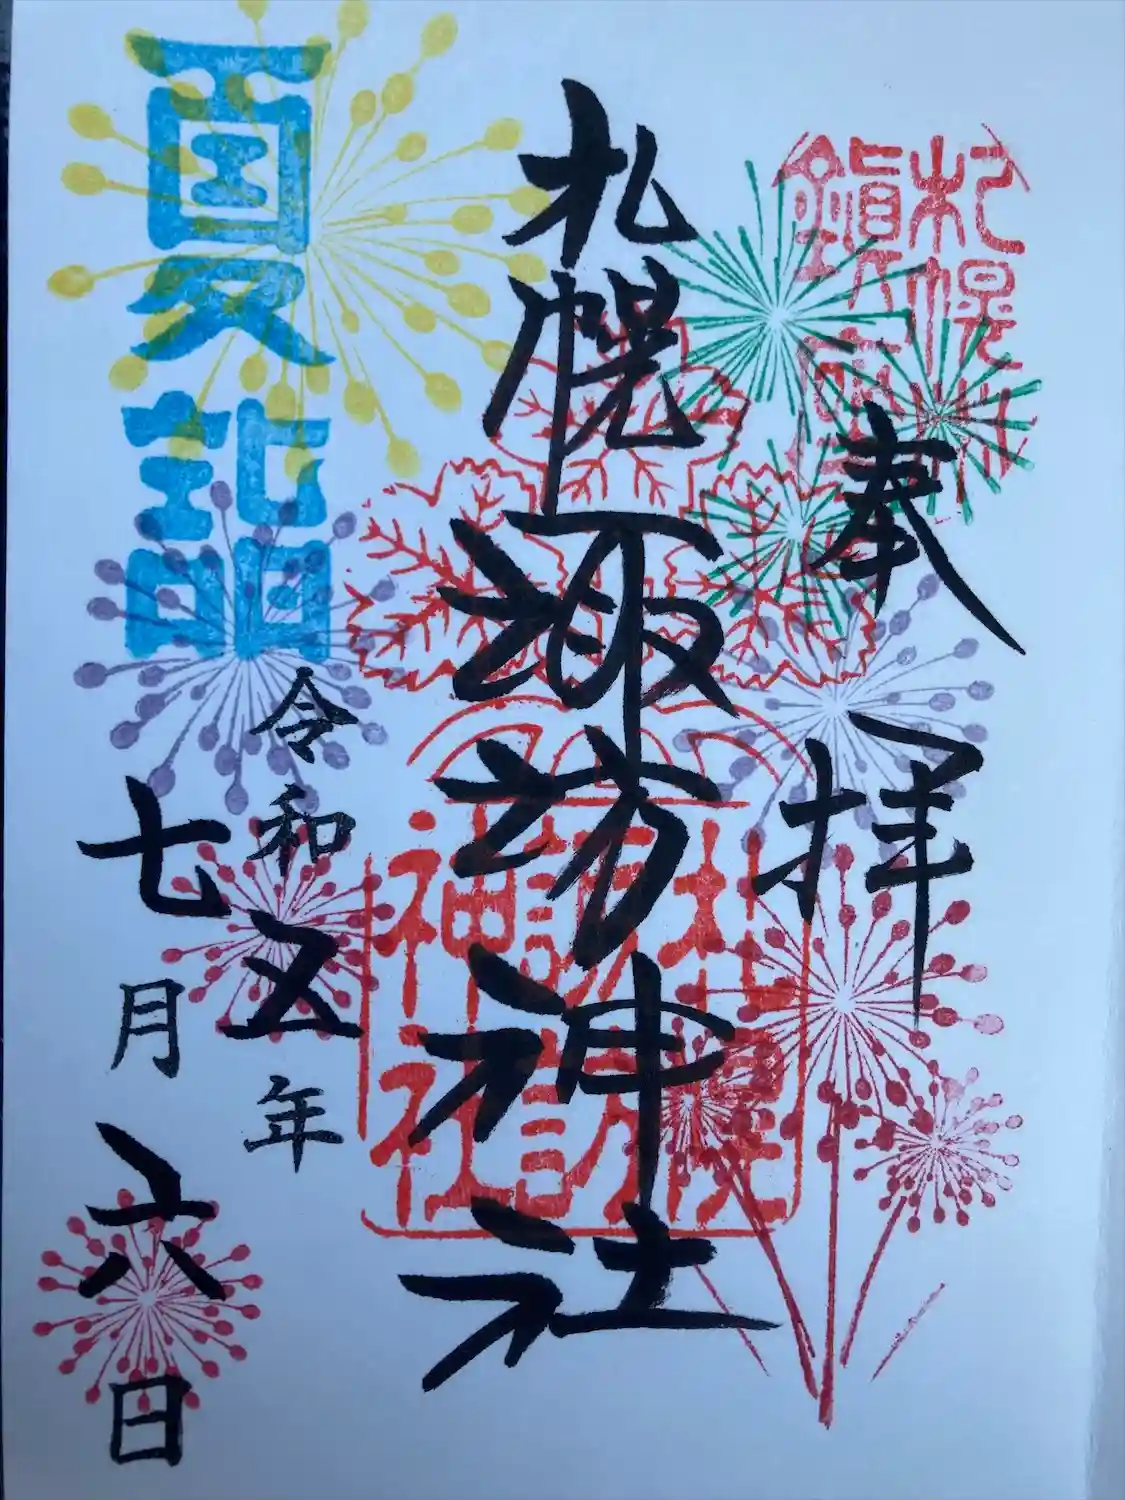 札幌村
鎮座
奉拝
札幌諏訪神社
札幌
諏訪
神社
夏詣
令和五年
七月六日